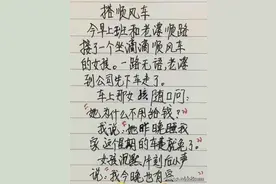 搭顺风车
今早上班和老婆顺路
接了一个坐滴滴顺风车
的女孩。一路无话,老婆
到公司先下车走了。
车上那女孩随口问:
"她为什么不用给钱?"
我说:"她昨晚陪我
这个星期的车费就免了。
女孩沉默片刻后小声
说:"我今晚也有空